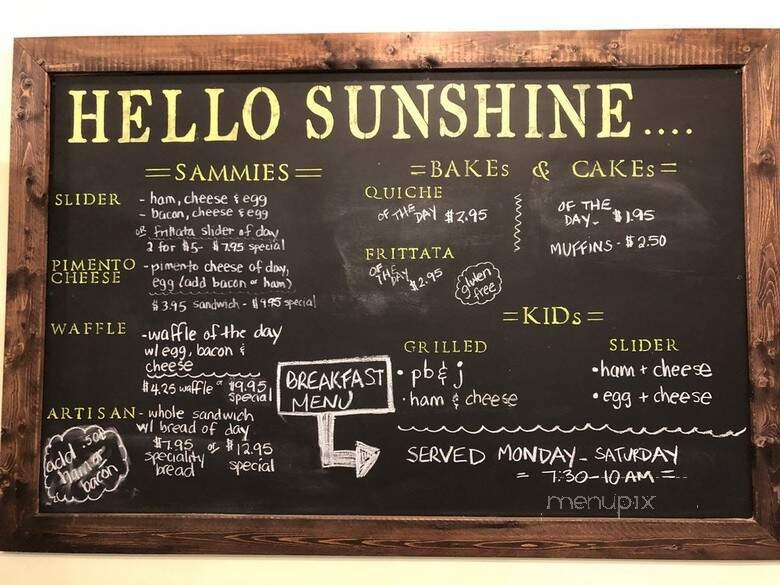 HELLO SUNSHINE....
=SAMMIES=
SLIDER - ham, cheese & egg
- bacon, cheese & egg
or frittata slider of day
2 for $5- $7.95 special
PIMENTO CHEESE - pimento cheese of day,
egg (add bacon or ham)
$3.95 sandwich - $9.95 special
WAFFLE - waffle of the day
w/ egg, bacon &
cheese
$4.25 waffle or $9.95 special
ARTISAN - whole sandwich
w/ bread of day
$7.95 or $12.95
speciality bread special
add .50¢
ham or
bacon
BREAKFAST
MENU
=BAKEs & CAKEs=
QUICHE
OF THE DAY $2.95
FRITTATA
OF THE DAY $2.95
gluten
free
OF THE
DAY- $1.95
MUFFINS - $2.50
=KIDs=
GRILLED
• pb & j
• ham & cheese
SLIDER
• ham + cheese
• egg + cheese
SERVED MONDAY - SATURDAY
= 7:30-10 AM =
menupix